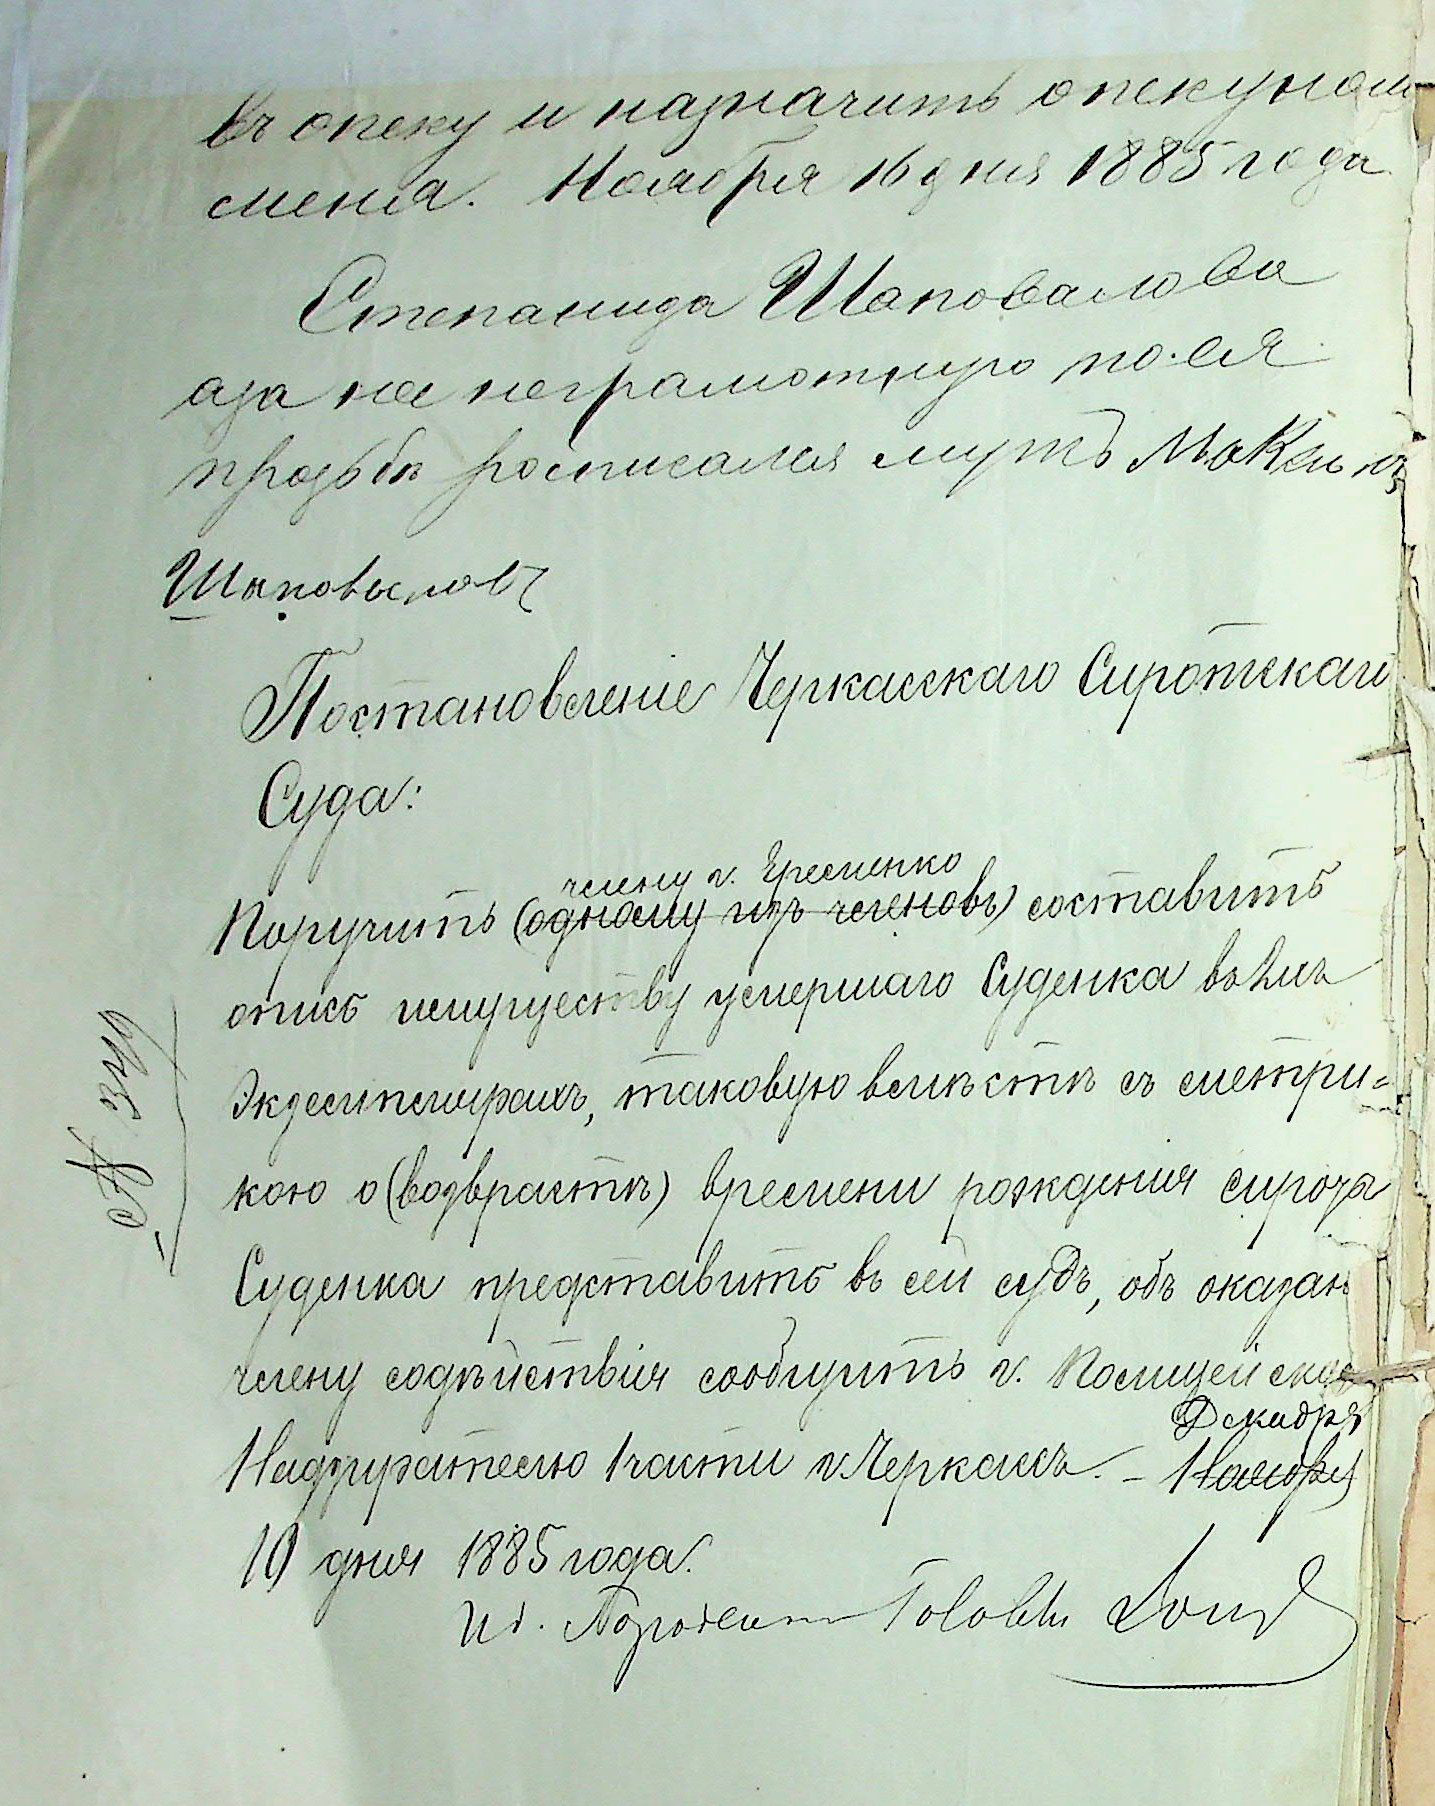 въ опеку и назначить опекуном
меня. Ноября 16 дня 1885 года
Степанида Шаповалова
аза не неграмотную по ея
прозьбе росписался мужъ Максимъ
Шаповаловъ
Постановленіе Черкасскаго Сиротскаго
Суда:
члену г. Яременко
Поручить (одному изъ членовъ) составить
опись имуществу умершаго Суденка въ 2хъ
Экземплярахъ, таковую вместе съ метри=
кою о (возврасте) времени рожденія сирота
Суденка представить въ сей судъ, объ оказан
члену содействія сообщить г. Полицейском
Декабря
Надзирателю 1 части г. Черкасъ. – Ноября
10 дня 1885 года.
Ид. Городского Головы
№ 349